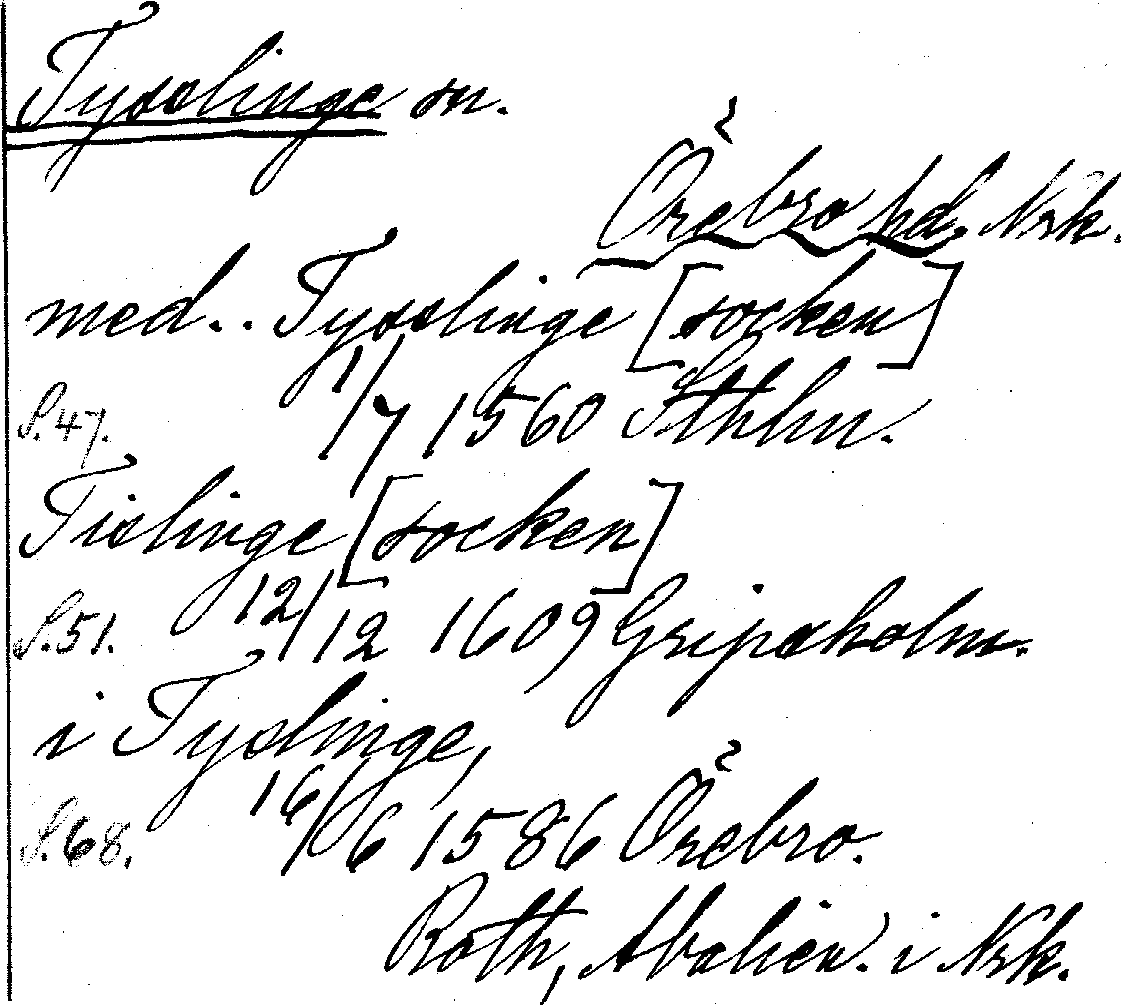 Tysslinge sn.
Örebro hd. Nrk.
med.. Tysslinge [socken]
S. 47. 1/7 1560 Sthlm.
Tislinge [socken]
S. 51. 12/12 1609 Gripsholm.
i Tyslinge,
S. 68. 16/6 1586 Örebro.
Roth, Abalien. i Nrk.